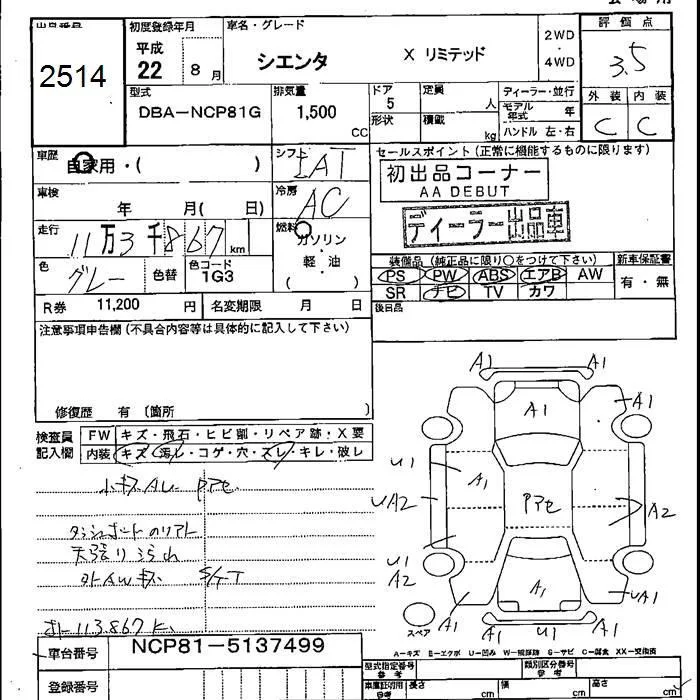 出品番号
2514
初度登録年月
平成
22 8 月
車名・グレード
シエンタ X リミテッド
2WD
・
4WD
評価点
3.5
外装 内装
C C
型式
DBA-NCP81G
排気量
1,500
CC
ドア
5
形状
定員
人
積載
kg
ディーラー・並行
モデル年式 年
ハンドル 左・右
車歴
自家用・( )
シフト
IAT
車検
年 月( 日)
冷房
AC
走行
11万3千867 km
燃料
ガソリン
・
軽・油
( )
色
グレー
色替
色コード
1G3
R券 11,200 円
名変期限 月 日
セールスポイント(正常に機能するものに限ります)
初出品コーナー
AA DEBUT
ディーラー出品車
装備品(純正品に限り○をつけて下さい)
新車保証書
PS PW ABS エアB AW
有・無
SR ナビ TV カワ
後日品
注意事項申告欄(不具合内容等は具体的に記入して下さい)
修復歴 有〔箇所 〕
検査員
記入欄
FW キズ・飛石・ヒビ割・リペア跡・X要
内装 キズ・汚レ・コゲ・穴・スレ・キレ・破レ
AU
ダッシュボード
天張り
外AWキズ S/FT
113.867
車台番号
NCP81-5137499
登録番号
A1 A1
A1
A1
U1
A1
UA2
A2
U1
A2
A1
A1
UA1
A1 U1 A1
スペア
A-キズ E-エクボ U-凹み W-補修跡 S-サビ C-腐食 XX-交換済
型式指定番号
参考
類別区分番号
参考
車庫証明用
参考
長さ cm
幅 cm
高さ cm